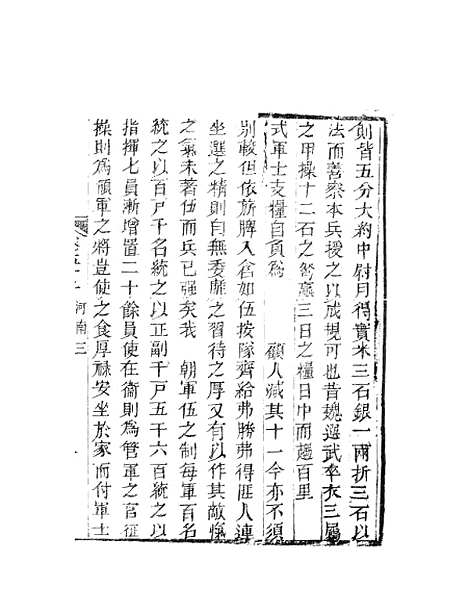 創皆五分大約中尉月得實米三石銀一兩折三石以
法而善察本兵授之以成規可也昔魏選武卒衣三屬
之甲操十二石之弩羸三日之糧日中而趨百里
式軍士支糧自負爲 顧人減其十一今亦不須
別較但依旂牌入倉如伍按隊齊給弗勝弗得雇人連
坐選之精則自無委靡之習待之厚又有以作其敵愾
之氣未著伍而兵已强矣我 朝軍伍之制每軍百名
統之以百戶千名統之以正副千戶五千六百統之以
指揮七員漸增置二十餘員使在衞則為管軍之官征
操則為領軍之將豈使之食厚祿安坐於家而付軍士
河南三